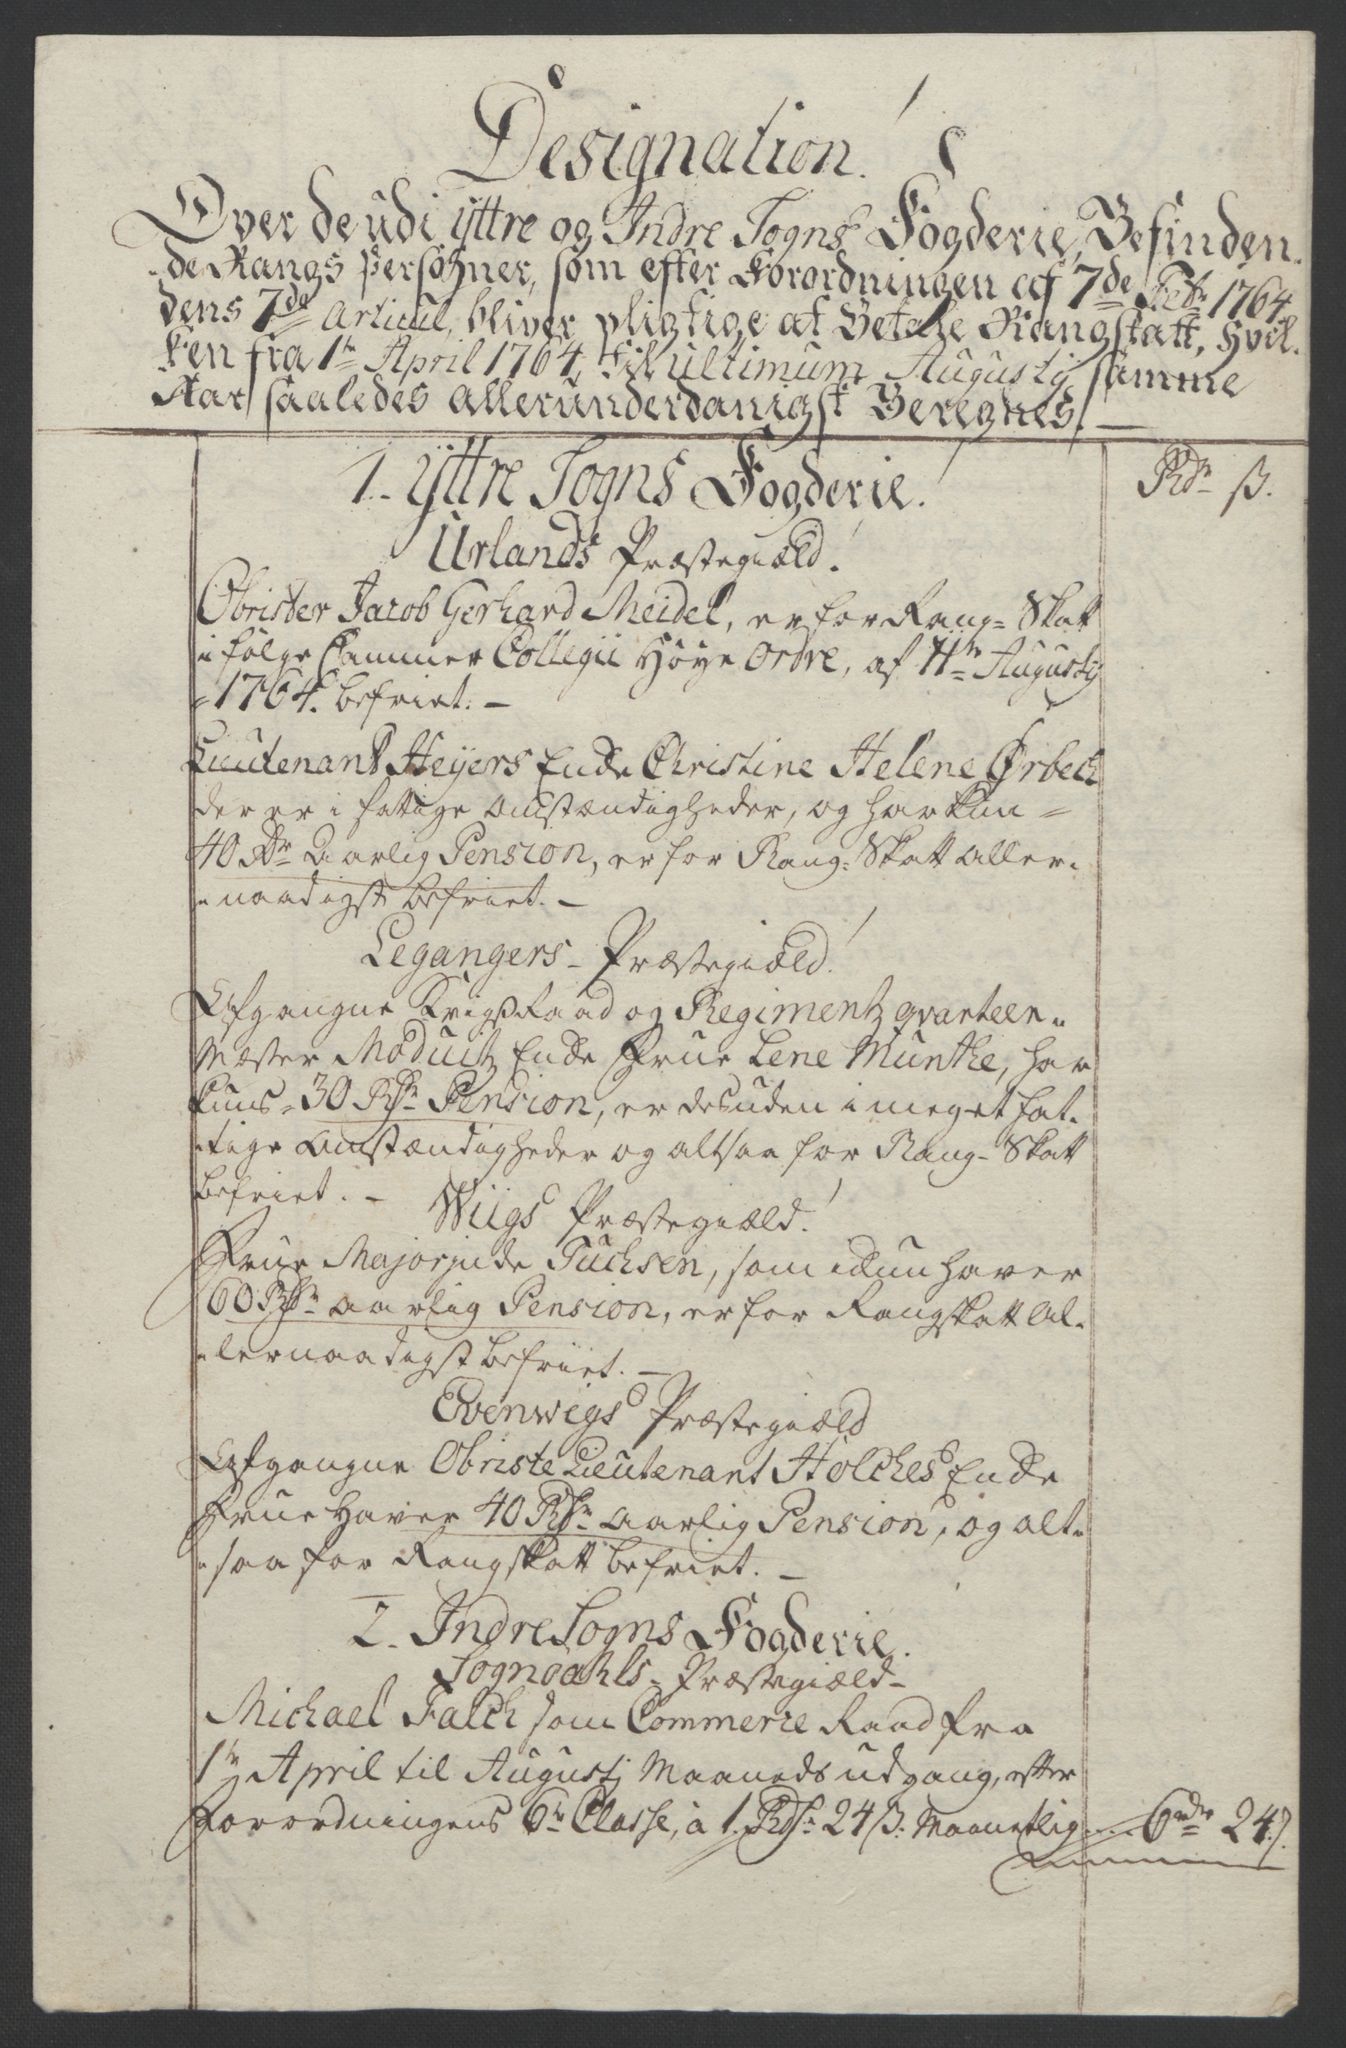 Designation.
Over de udi ÿttre og Indre Sogns Fogderie, Befinden-
de Rangs Persohner, som efter Forordningen af 7de Febr 1764
dens 7de Articul, bliver pligtige at Betale Rangskatt, hvil-
ken fra 1te April 1764, til ultimum Augustj samme
Aar saaledes allerunderdanigst Beregnes. —
1. ÿttre Sogns Fogderie.
Rdr ß.
Urlands Præstegiæld.
Obrister Jacob Gerhard Meidel, er for Rang-Skatt
i følge Cammer Collegii Høye Ordre, af 11te Augustj
1764. befriet. —
Lieutenant Heÿers Enke Christine Helene Ørbech
der er i fatige omstændigheder, og har kun
40 Rdr Aarlig Pension, er for Rang-Skatt aller-
naadigst befriet. —
Legangers - Præstegiæld.
Afgangne Krigs Raad og Regimentz qvarteer-
Mester Moduitz Enke Frue Lene Munthe, har
kuns 30 Rdr Pension, er desuden i meget fat-
tige omstændigheder og altsaa for Rang-Skatt
befriet. —
Wiigs Præstegiæld.
Frue Majorinde Tuchsen, som ickun haver
60 Rdr aarlig Pension, er for Rangskatt Al-
lernaadigst befriet. —
Evenwigs Præstegiæld
Afgangne Obriste Lieutenant Holches Enke
Frue haver 40 Rdr aarlig Pension, og alt-
saa for Rangskatt befriet. —
2. Indre Sogns Fogderie.
Sogndahls - Præstegiæld -
Michael Falch som Commerce Raad fra
1te April til Augustj Maaneds udgang, efter
Forordningens 6te Classe, à 1. Rdr 24 ß. Maanetlig .... 6 rdr 24 ß.